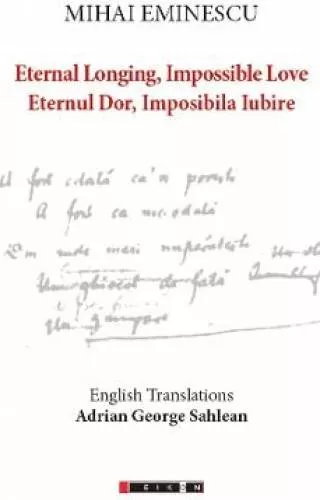 MIHAI EMINESCU
Eternal Longing, Impossible Love
Eternul Dor, Imposibila Iubire
A fost odată ca'n povești
A fost ca niciodată
Din rude mari împărătești
Un ghiocel de fată
English Translations
Adrian George Sahlean
EIKON